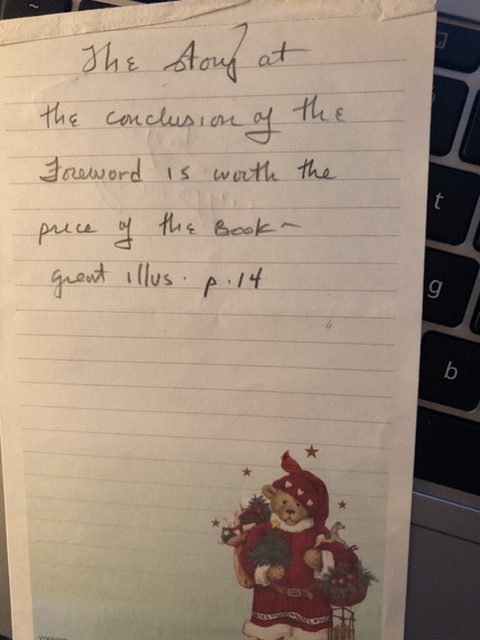 The story at
the conclusion of the
Foreword is worth the
price of the Book -
great illus. p. 14
t
g
b